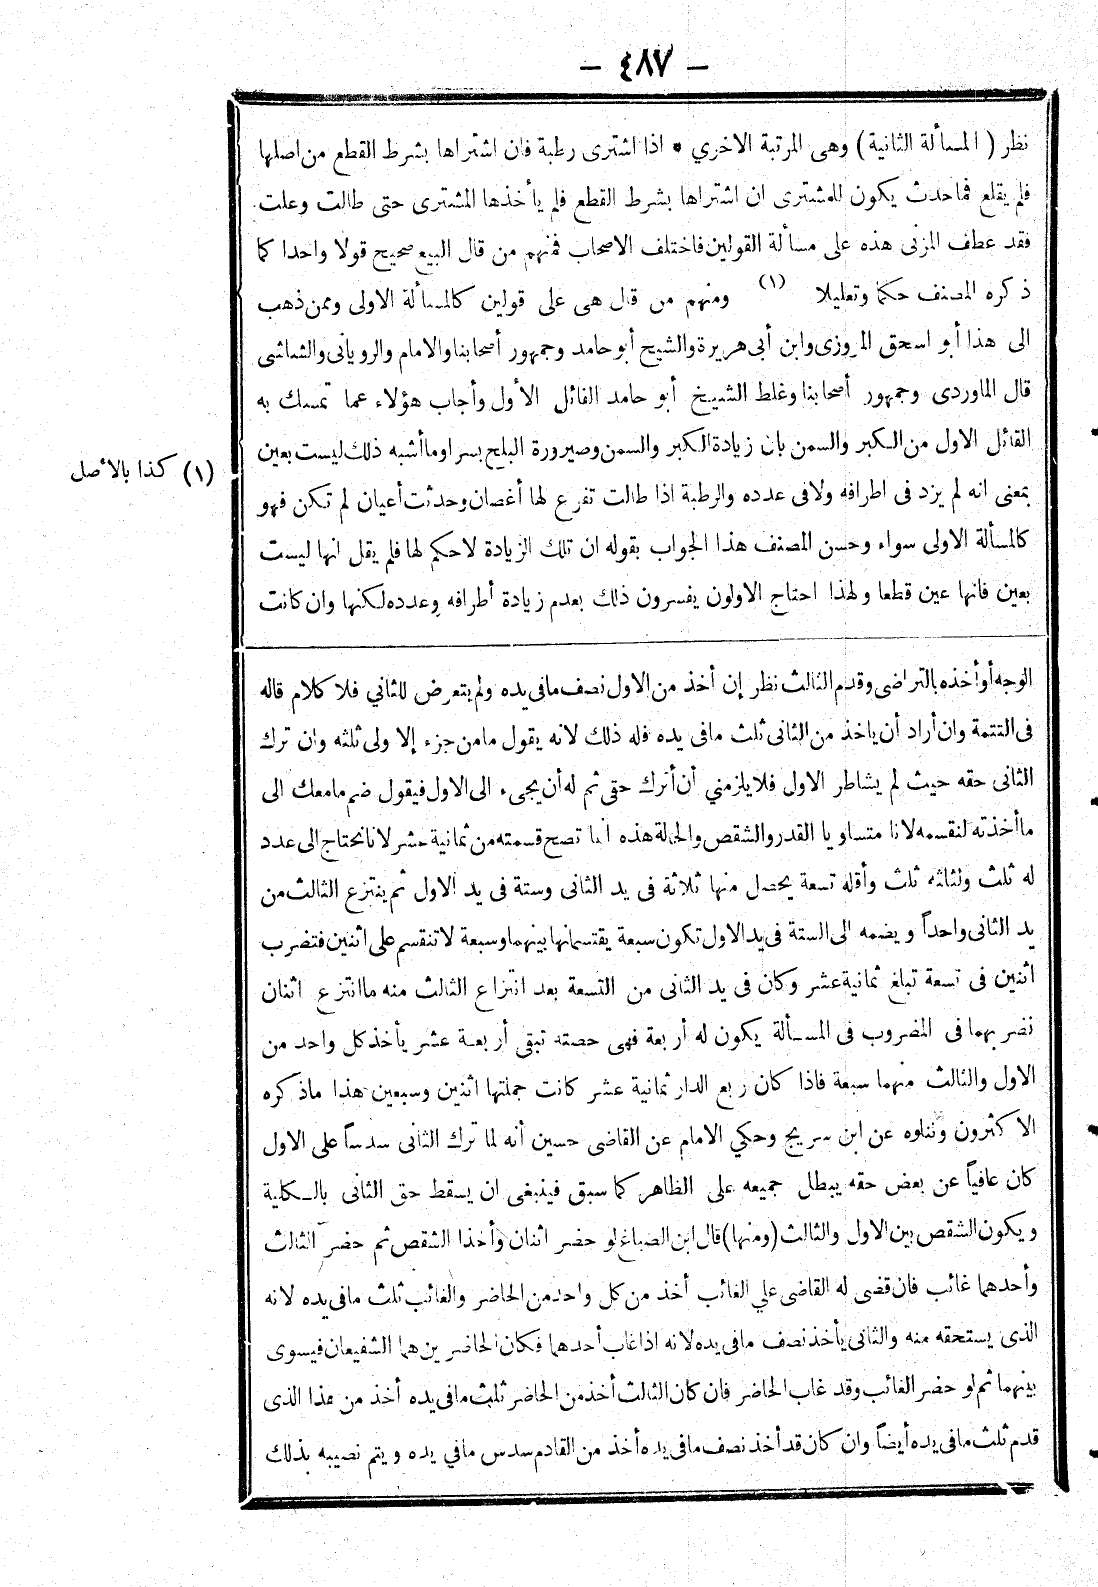 — ٤٨٧ —
نظر ( المسألة الثانية ) وهى المرتبة الاخري • اذا اشترى رطبة فان اشتراها بشرط القطع من اصلها
فلم يقلع فما حدث يكون للمشترى ان اشتراها بشرط القطع فلم يأخذها المشترى حتى طالت وعلت
فقد عطف المزنى هذه على مسألة القولين فاختلف الاصحاب فمنهم من قال البيع صحيح قولا واحدا كما
ذكره المصنف حكما وتعليلا (١) ومنهم من قال هى على قولين كالمسألة الاولى وممن ذهب
الى هذا أبو اسحق المروزى وابن أبى هريرة والشيخ أبو حامد وجمهور أصحابنا والامام والرويانى والشاشى
قال الماوردى وجمهور أصحابنا وغلط الشيخ أبو حامد القائل الأول وأجاب هؤلاء عما تمسك به
القائل الاول من الكبر والسمن بان زيادة الكبر والسمن وصيرورة البلح بسرا وما أشبه ذلك ليست بعين
بمعنى انه لم يزد فى اطرافه ولا فى عدده والرطبة اذا طالت تفرع لها أغصان وحدثت أعيان لم تكن فهو
(١) كذا بالأصل
كالمسألة الاولى سواء وحسن المصنف هذا الجواب بقوله ان تلك الزيادة لا حكم لها فلم يقل انها ليست
بعين فانها عين قطعا ولهذا احتاج الاولون يفسرون ذلك بعدم زيادة أطرافه وعدده لكنها وان كانت
الوجه أو أخذه بالتراضى وقدم الثالث نظر إن أخذ من الاول نصف مافى يده ولم يتعرض للثاني فلا كلام قاله
فى التتمة وان أراد أن ياخذ من الثانى ثلث مافى يده فله ذلك لانه يقول مامن جزء إلا ولى ثلثه وان ترك
الثانى حقه حيث لم يشاطر الاول فلا يلزمني أن أترك حقى ثم له أن يجىء الى الاول فيقول ضم مامعك الى
ما أخذته لنقسمه لانا متساويا القدر والشقص والحالة هذه انما تصح قسمته من ثمانية عشر لانا نحتاج الى عدد
له ثلث ولثلثه ثلث وأقله تسعة يحصل منها ثلاثة فى يد الثانى وستة فى يد الاول ثم ينتزع الثالث من
يد الثانى واحداً ويضمه الى الستة فى يد الاول تكون سبعة يقتسمانها بينهما وسبعة لا تنقسم على اثنين فتضرب
اثنين فى تسعة تبلغ ثمانية عشر وكان فى يد الثانى من التسعة بعد انتزاع الثالث منه ما انتزع اثنان
نضربهما فى المضروب فى المسألة يكون له أربعة فهى حصته تبقى أربعة عشر يأخذ كل واحد من
الاول والثالث منهما سبعة فاذا كان ربع الدار ثمانية عشر كانت جملتها اثنين وسبعين هذا ماذكره
الاكثرون ونقلوه عن ابن سريج وحكي الامام عن القاضى حسين أنه لما ترك الثانى سدساً على الاول
كان عافياً عن بعض حقه يبطل جميعه على الظاهر كما سبق فينبغى ان يسقط حق الثانى بالكلية
ويكون الشقص بين الاول والثالث (ومنها) قال ابن الصباغ لو حضر اثنان وأخذا الشقص ثم حضر الثالث
وأحدهما غائب فان قضى له القاضى علي الغائب أخذ من كل واحد من الحاضر والغائب ثلث مافى يده لانه
الذى يستحقه منه والثانى يأخذ نصف مافى يده لانه اذا غاب أحدهما فكان الحاضرين هما الشفيعان فيسوى
بينهما ثم لو حضر الغائب وقد غاب الحاضر فان كان الثالث أخذ من الحاضر ثلث مافى يده أخذ من هذا الذى
قدم ثلث مافى يده أيضاً وان كان قد أخذ نصف مافى يده أخذ من القادم سدس مافي يده ويتم نصيبه بذلك